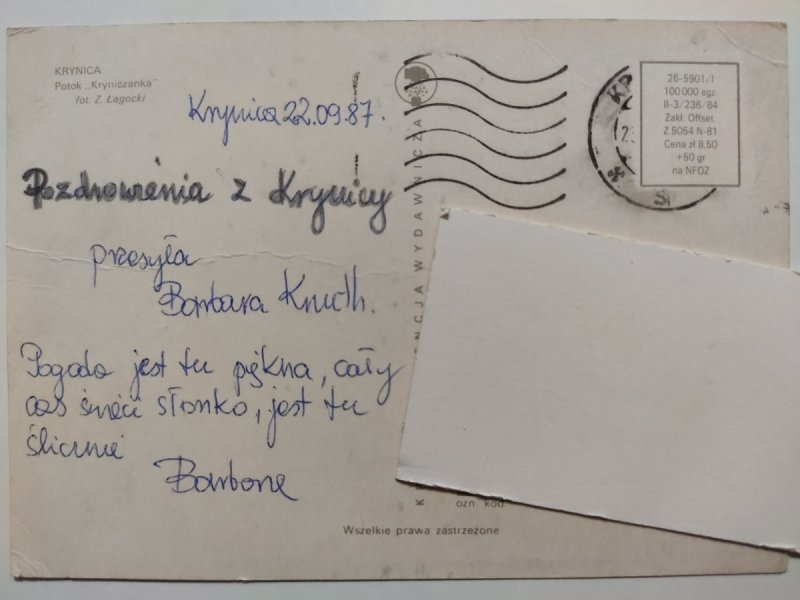 KRYNICA
Potok „Kryniczanka"
(fot. Z. Łagocki
Krynica 22.09.87.
Pozdrowienia z Krynicy
przesyła
Barbara Knuth.
Pogoda jest tu piękna, cały
czas świeci słonko, jest tu
ślicznie
26-5901/I
100 000 egz.
II-3/236/84
Zakł. Offset.
Z 5054 N-81
Cena zł 8,50
+50 gr
na NFOZ
NCJA WYDAWNICZA
ozn. kod
Wszelkie prawa zastrzeżone